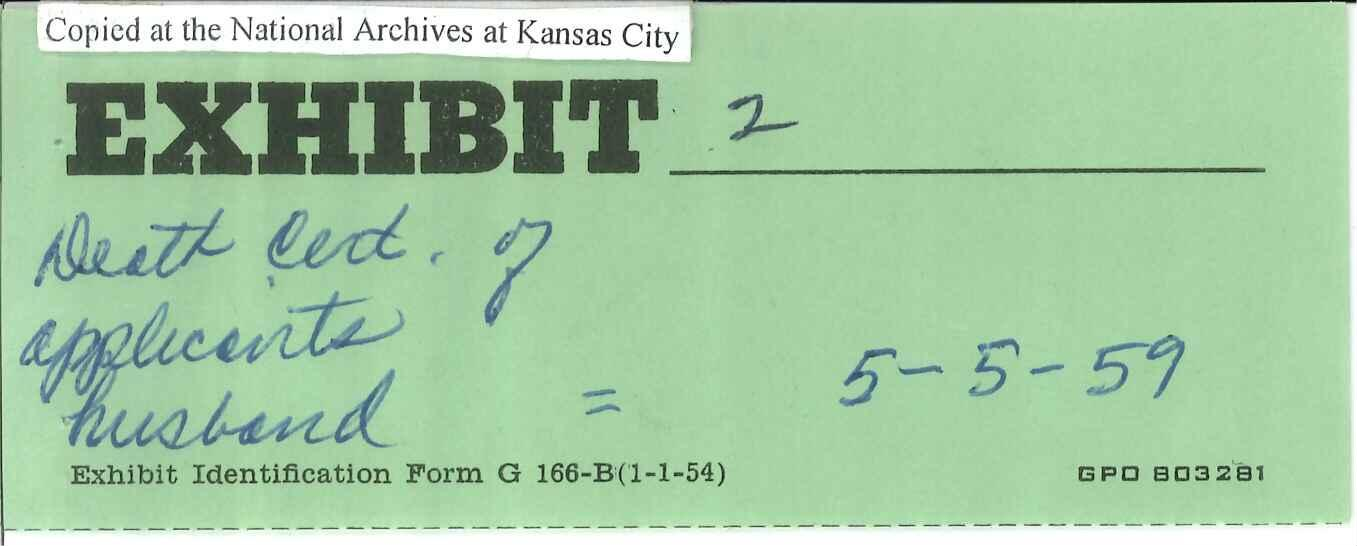 Copied at the National Archives at Kansas City
EXHIBIT 2
Death Cert. of
applicants
husband = 5-5-59
Exhibit Identification Form G 166-B(1-1-54) GPO 803281